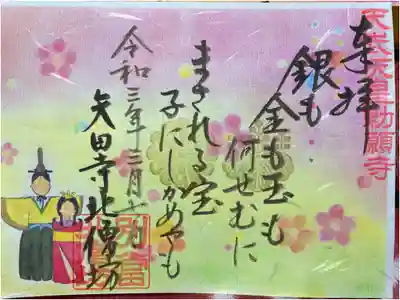 天武天皇勅願寺
奉拝
銀も
金も玉も
何せむに
まされる宝
子にしかめやも
令和三年三月
矢田寺北僧坊